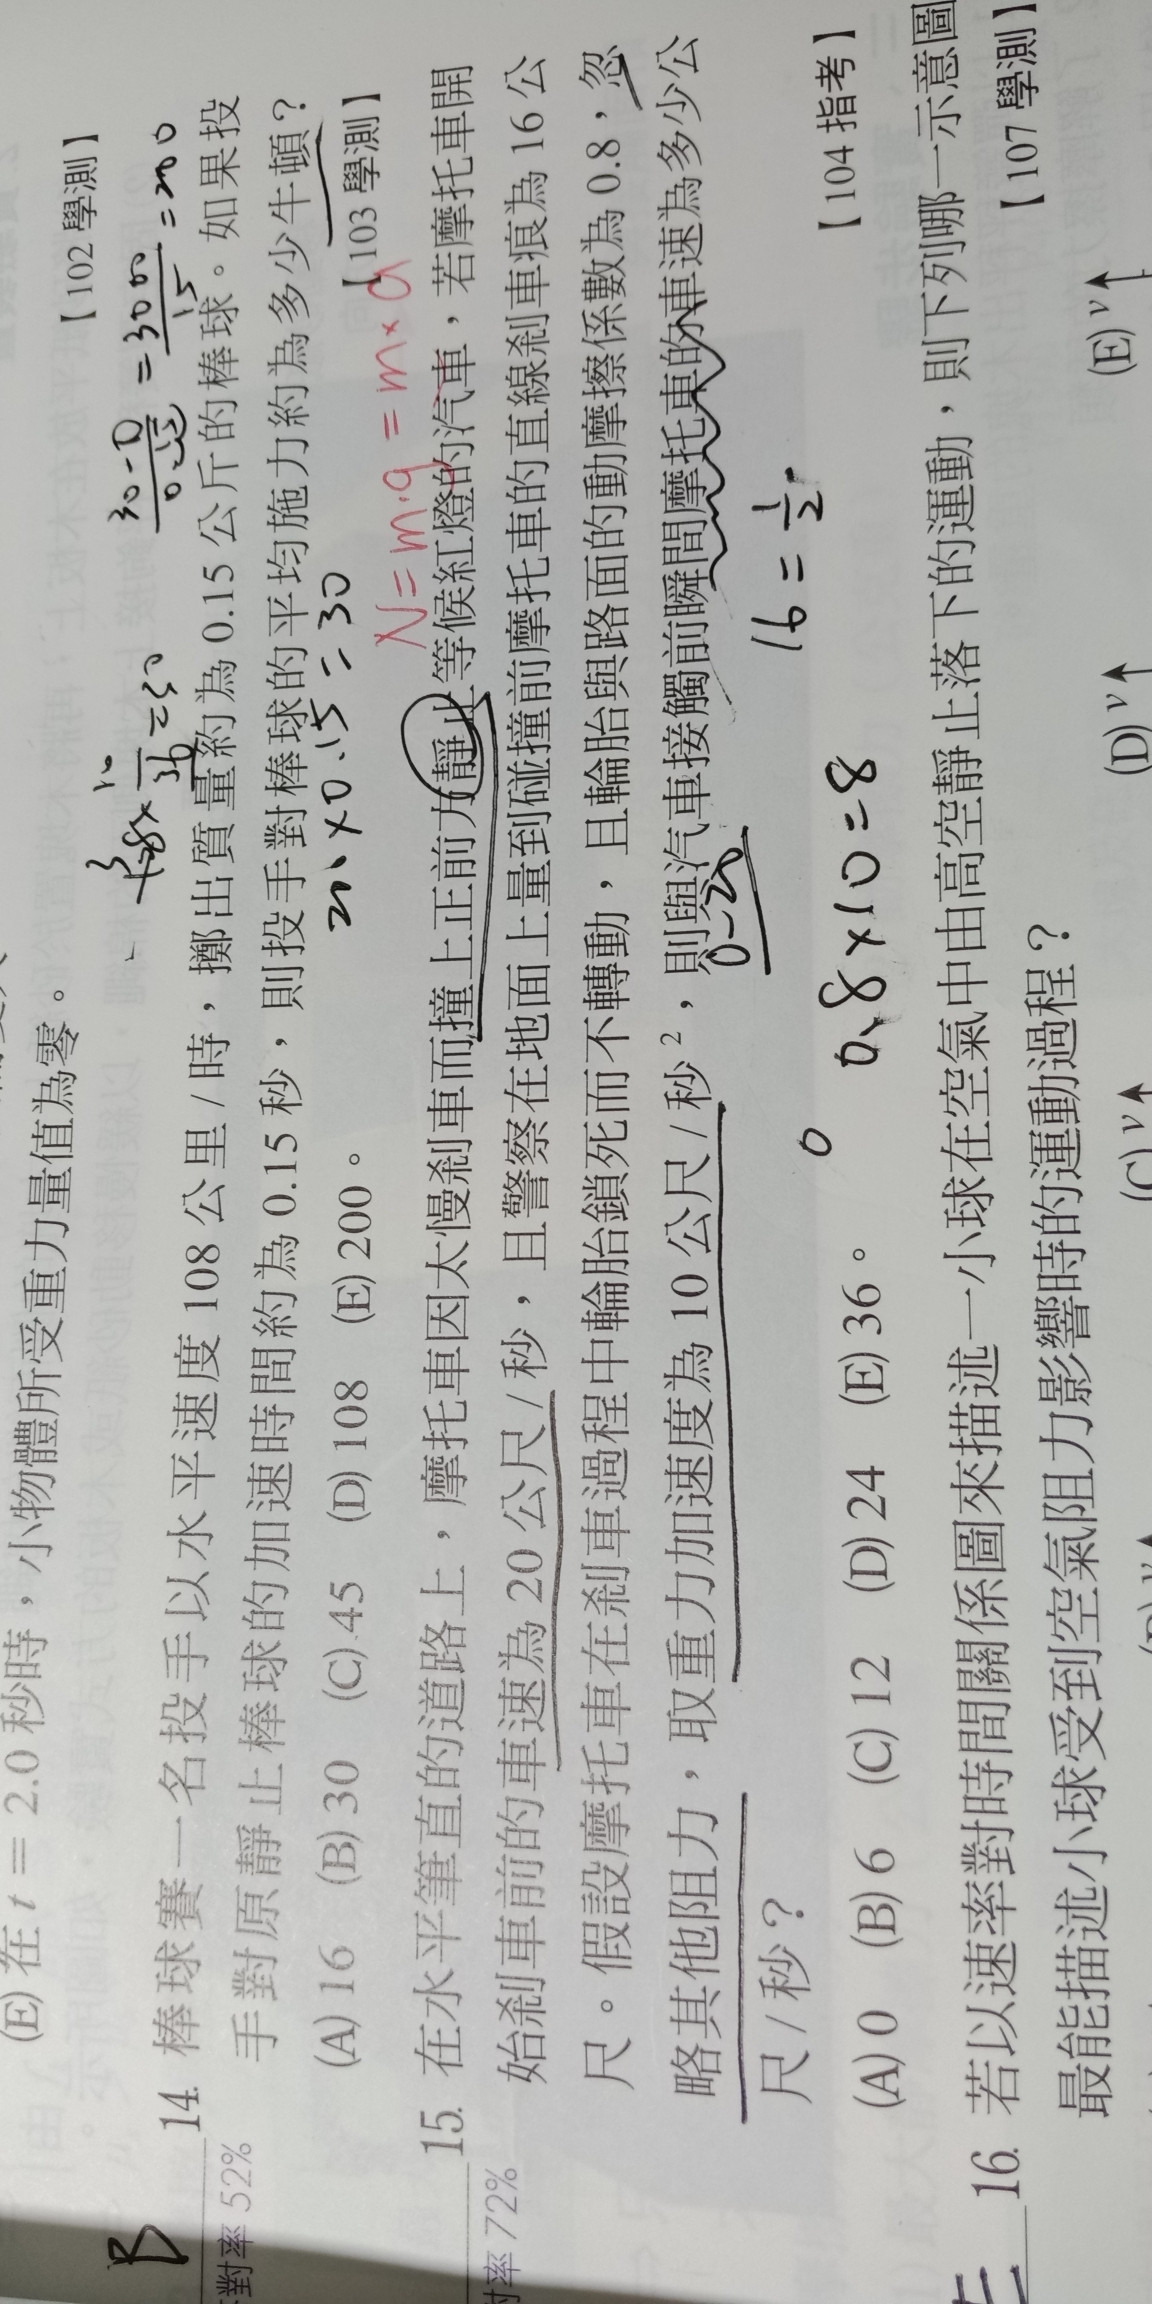 (E)在 t = 2.0 秒時，小物體所受重力量值為零。
【102 學測】
B
14. 棒球賽一名投手以水平速度 108 公里 / 時，擲出質量約為 0.15 公斤的棒球。如果投
對率 52%
手對原靜止棒球的加速時間約為 0.15 秒，則投手對棒球的平均施力約為多少牛頓？
(A) 16 (B) 30 (C) 45 (D) 108 (E) 200。
【103 學測】
N = m·g = m × a
15. 在水平筆直的道路上，摩托車因太慢剎車而撞上正前方靜止等候紅燈的汽車，若摩托車開
對率 72%
始剎車前的車速為 20 公尺 / 秒，且警察在地面上量到碰撞前摩托車的直線剎車痕為 16 公
尺。假設摩托車在剎車過程中輪胎鎖死而不轉動，且輪胎與路面的動摩擦係數為 0.8，忽
略其他阻力，取重力加速度為 10 公尺 / 秒²，則與汽車接觸前瞬間摩托車的車速為多少公
尺 / 秒？
0-20
16 = 1/2
0.8 × 10 = 8
(A) 0 (B) 6 (C) 12 (D) 24 (E) 36。
【104 指考】
16. 若以速率對時間關係圖來描述一小球在空氣中由高空靜止落下的運動，則下列哪一示意圖
最能描述小球受到空氣阻力影響時的運動過程？
【107 學測】
(C) v
(D) v
(E) v